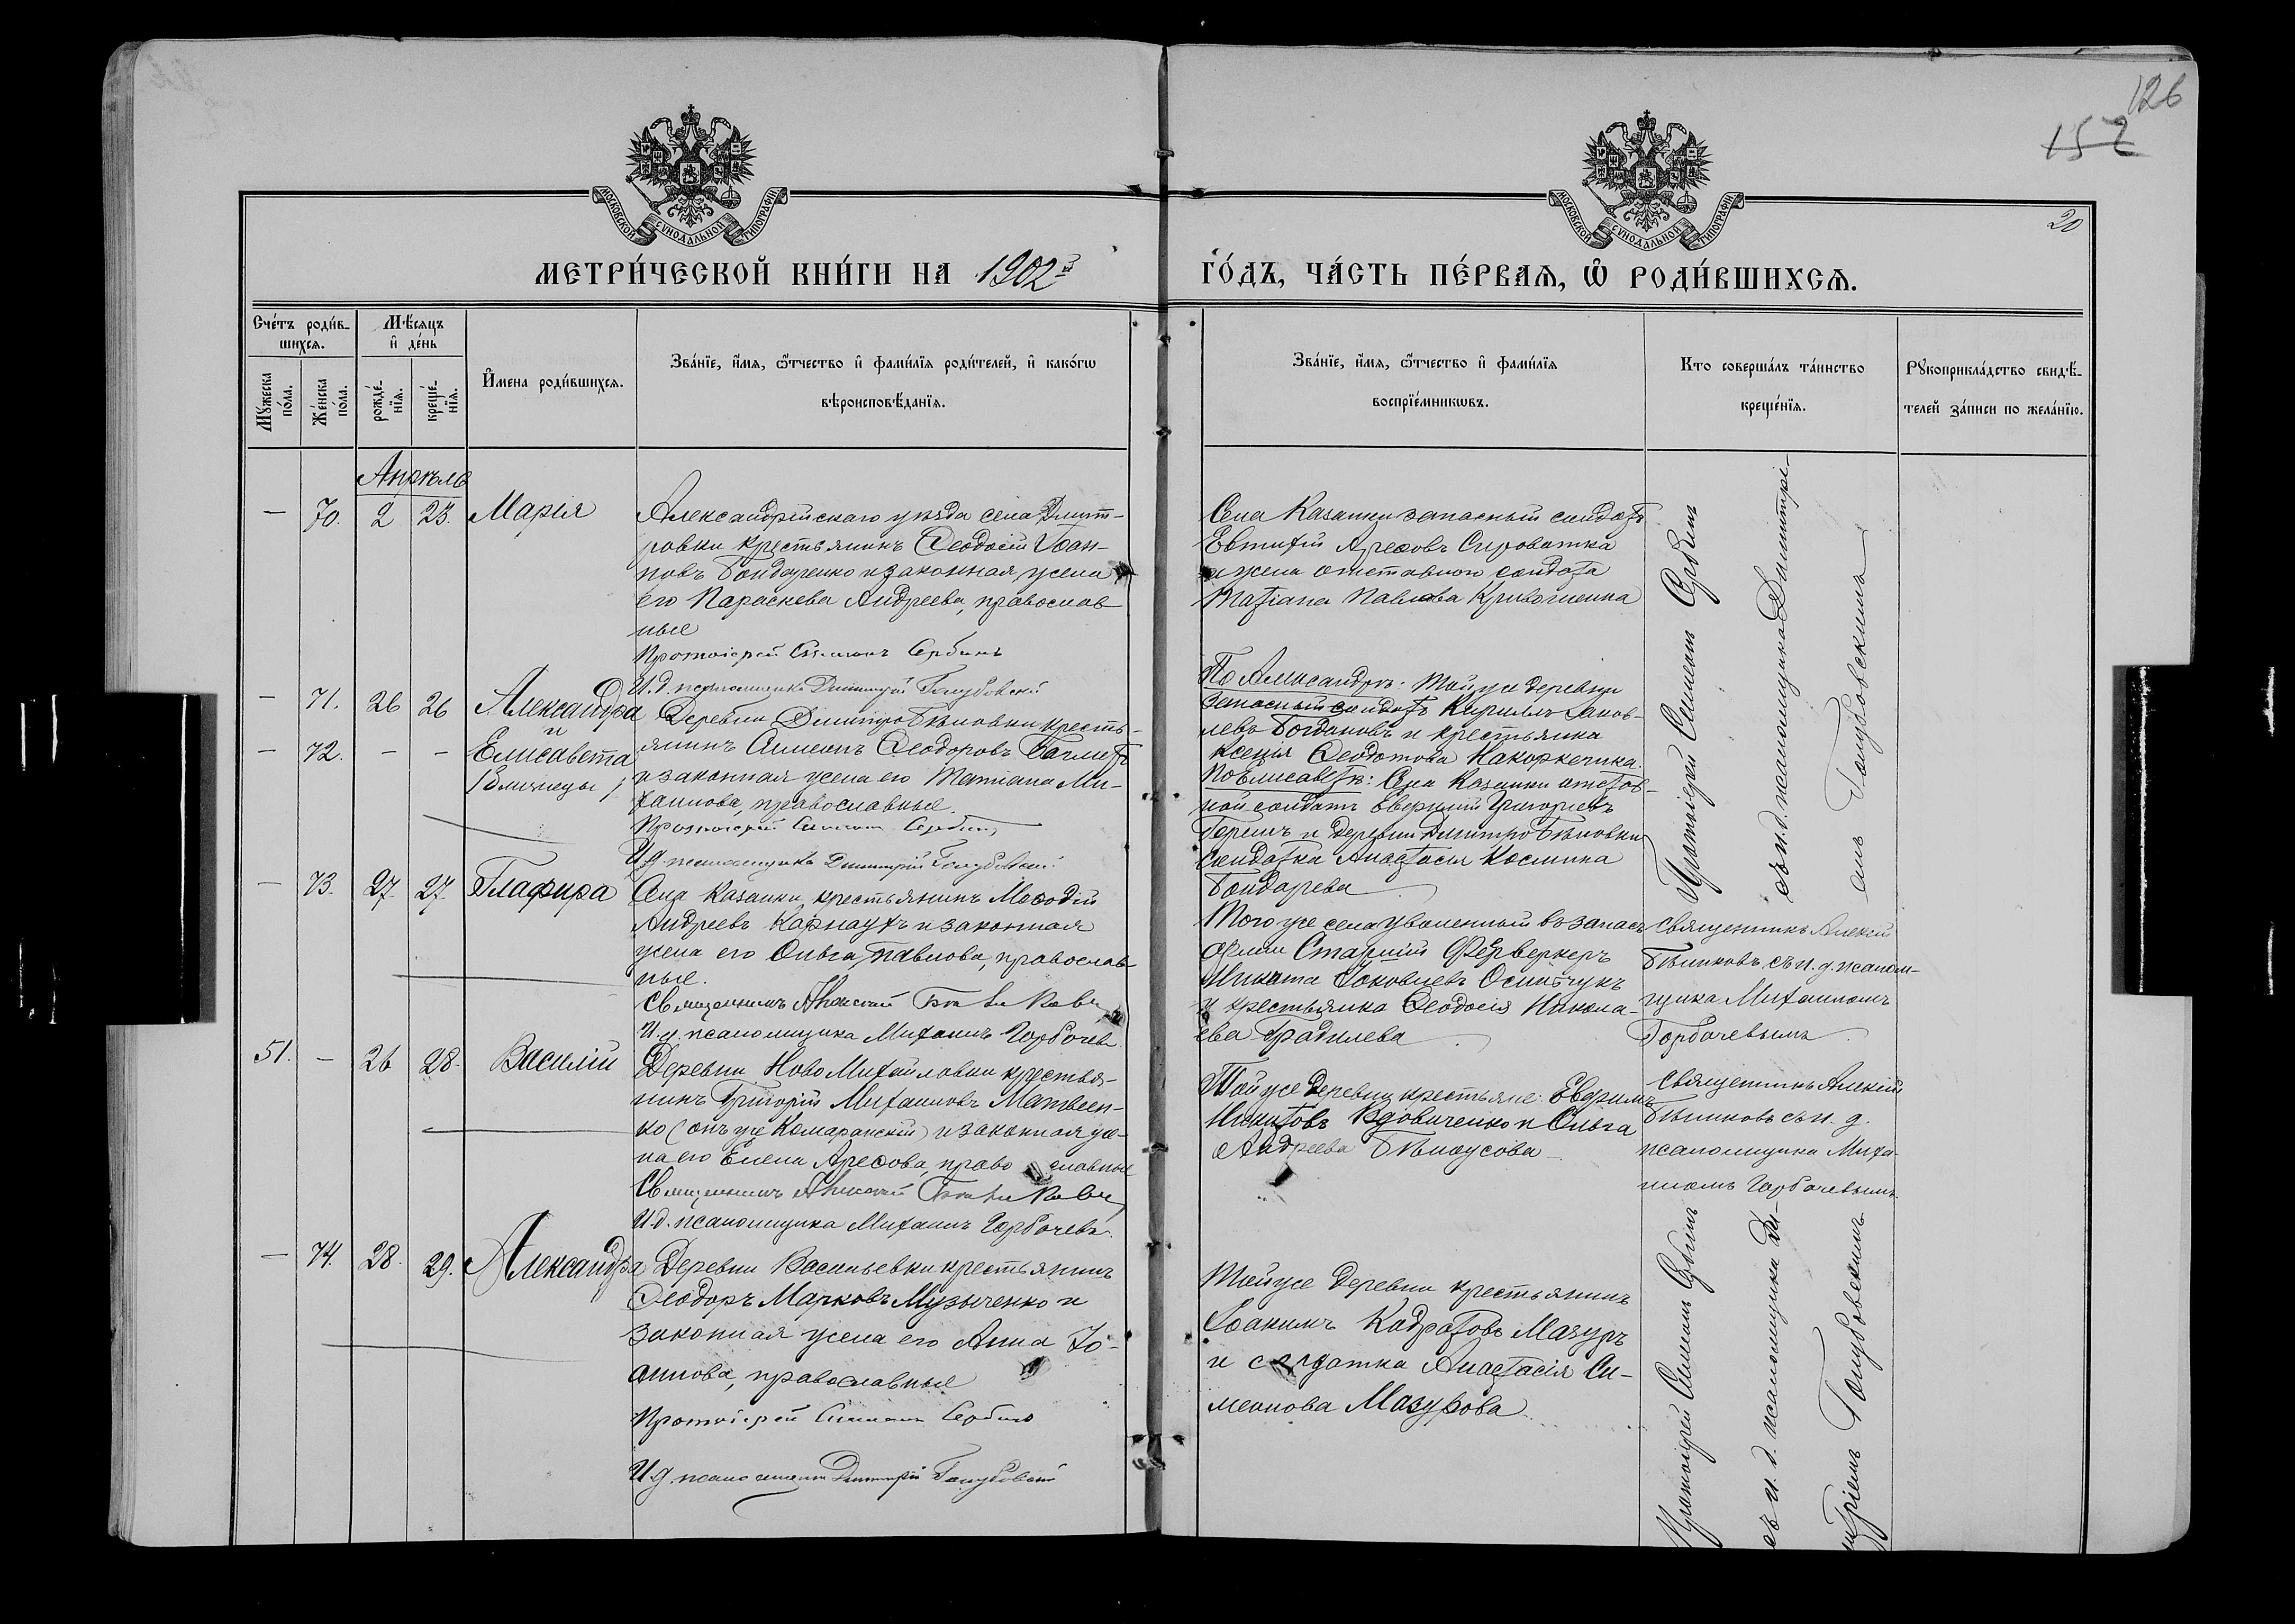 126
157
20
МОСКОВСКОЙ СѴНОДАЛЬНОЙ ТИПОГРАФІИ
МОСКОВСКОЙ СѴНОДАЛЬНОЙ ТИПОГРАФІИ
МЕТРИ́ЧЕСКОЙ КНИ́ГИ НА 1902й
ГО́ДЪ, ЧА́СТЬ ПЕ́РВАЯ, Ѡ РОДИ́ВШИХСѦ.
Сче́тъ роди́в-
шихсѧ.
Мꙋжеска по́ла.
Же́нска по́ла.
Мѣ́сяцъ
и де́нь
рожде́-
нїя.
креще́-
нїя.
И҆мена роди́вшихсѧ.
Зва́нїе, и҆́мѧ, ѻ҆́тчество и҆ фами́лїѧ роди́телей, и҆ како́гѡ
вѣроисповѣ́данїѧ.
Зва́нїе, и҆́мѧ, ѻ҆́тчество и҆ фами́лїѧ
воспрїе́мникѡвъ.
Кто соверша́лъ та́инство
креще́нїѧ.
Рꙋкоприкла́дство свидѣ́-
телей за́писи по жела́нїю.
Апрѣль
— 70. 2 23. Марія
Александрійскаго уѣзда села Дмит-
ровки крестьянинъ Ѳеодосій Іоан-
новъ Бондаренко и законная жена
его Параскева Андреева, православ-
ные
Протоіерей Симеонъ Сербинъ
И.д. псаломщика Димитрій Голубовскій
Села Казанки запасный солдатъ
Евтихій Ареѳовъ Сироватка
и жена отставного солдата
Татіана Павлова
Протоіерей Симеонъ Сербинъ
съ и.д. псаломщика Димитрі-
емъ Голубовскимъ
— 71. 26 26 Александра
и
— 72. — — Елисавета
/близнецы/
Деревни Димитро Бѣловки кресть-
янинъ Симеонъ Ѳеодоровъ
и законная жена его Татіана Ми-
хаилова, православные.
Протоіерей Симеонъ Сербинъ
И.д. псаломщика Димитрій Голубовскій
По Александрѣ: Той же деревни
запасный солдатъ Кириллъ Іаков-
левъ Богдановъ и крестьянка
Ксенія Ѳеодотова
По Елисаветѣ: Села Казанки отстав-
ной солдатъ Григорьевъ
и деревни Димитро Бѣловки
солдатка Анастасія Космина
Бондарева
— 73. 27. 27. Глафира
Села Казанки крестьянинъ Меѳодій
Андреевъ Карнаухъ и законная
жена его Ольга Павлова, православ-
ные.
Священникъ Алексій Бѣликовъ
И.д. псаломщика Михаилъ Горбачевъ
Того же села уволенный въ запасъ
арміи Старшій Фейерверкеръ
Никита Іаковлевъ Осипчукъ
и крестьянка Ѳеодосія Никола-
ева
Священникъ Алексій
Бѣликовъ съ и.д. псалом-
щика Михаиломъ
Горбачевымъ
51. — 26 28. Василій
Деревни Ново Михайловки крестья-
нинъ Григорій Михаиловъ Матвеен-
ко (онъ же Комаранскій) и законная же-
на его Елена Ареѳова, православные
Священникъ Алексій Бѣликовъ
И.д. псаломщика Михаилъ Горбачевъ.
Той же деревни крестьяне:
Никитовъ Вдовиченко и Ольга
Андреева Бѣлоусова
Священникъ Алексій
Бѣликовъ съ и.д.
псаломщика Миха-
иломъ Горбачевымъ
— 74. 28. 29. Александра
Деревни Васильевки крестьянинъ
Ѳеодоръ Марковъ Музыченко и
законная жена его Анна Іо-
аннова, православные
Протоіерей Симеонъ Сербинъ
И.д. псаломщика Димитрій Голубовскій
Той же деревни крестьянинъ
Іоакимъ Кодратовъ Мазуръ
и солдатка Анастасія Си-
меонова Мазурова
Протоіерей Симеонъ Сербинъ
съ и.д. псаломщика Ди-
митріемъ Голубовскимъ